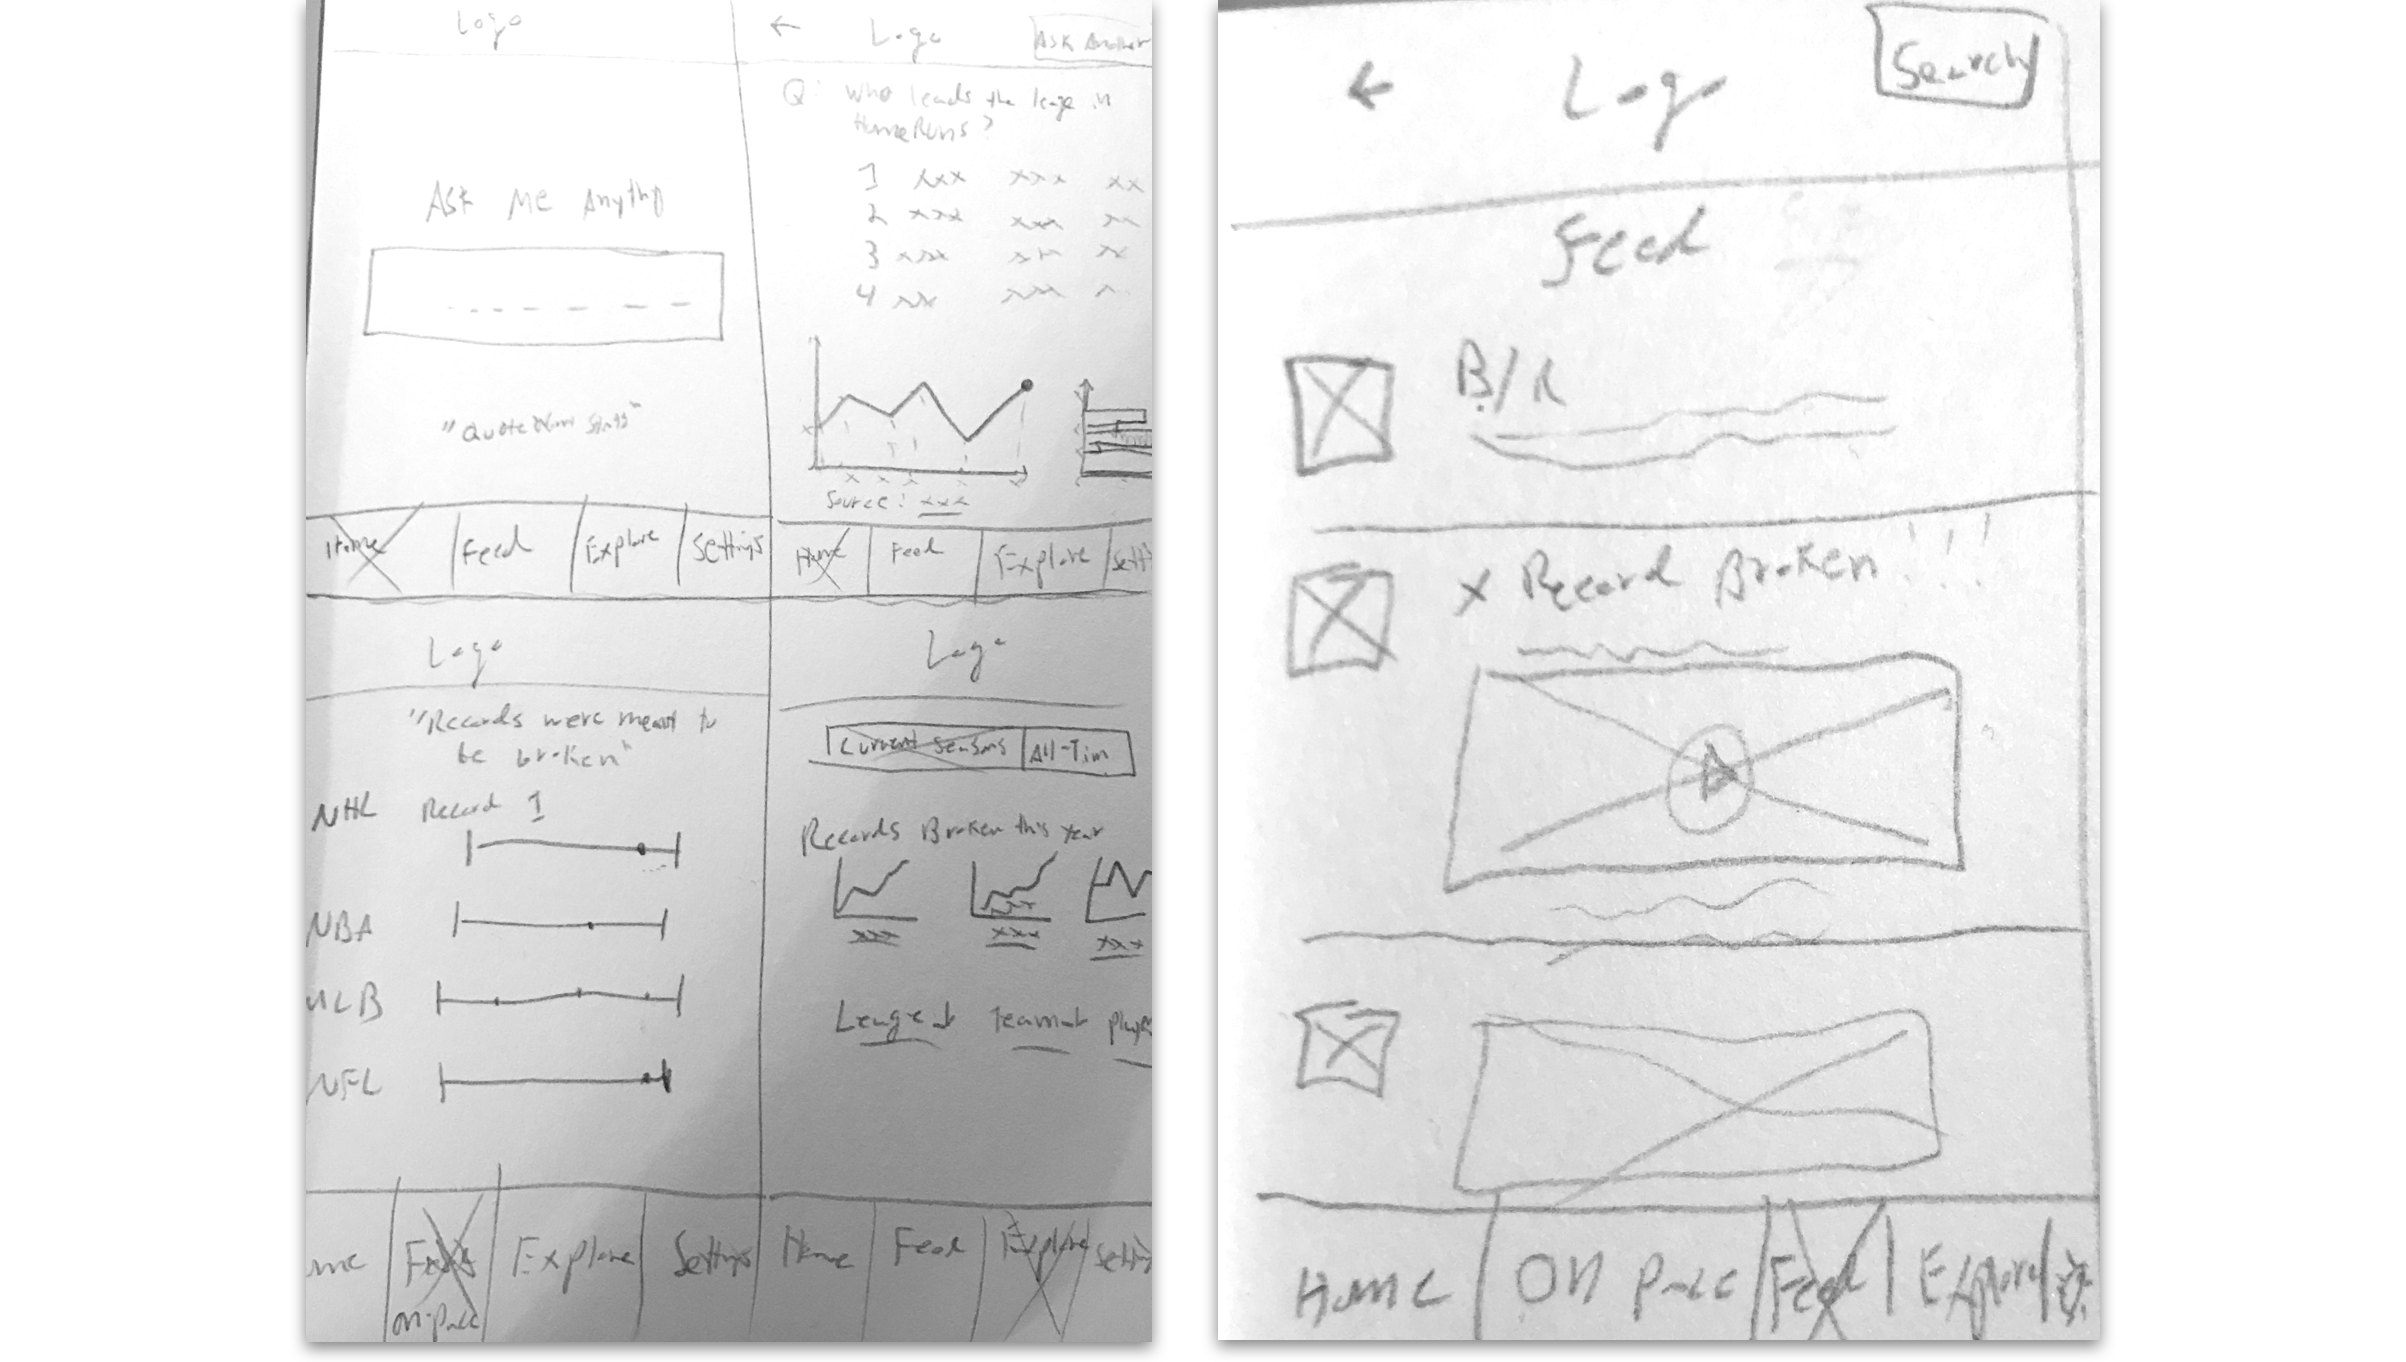 Logo
Ask Me Anythg
Home Feed Explore Settings
← Logo Ask Another
Q: Who leads the leage in
HomeRuns?
1 xxx xxx xx
2 xxx xxx xx
3 xxx xxx xx
4 xxx xxx
Source: xxx
Home Feed Explore Sett
Logo
"Records were meant to
be broken"
NHL Record 1
NBA
MLB
NFL
me Explore Settings
on-pace
Logo
Current Seasons All-Tim
Records Broken this year
xxx xxx xxx
League Team Playe
Home Feed Explore Settin
← Logo Search
Feed
B/R
x Record Broken!!!
Home On Pace Feed Explore